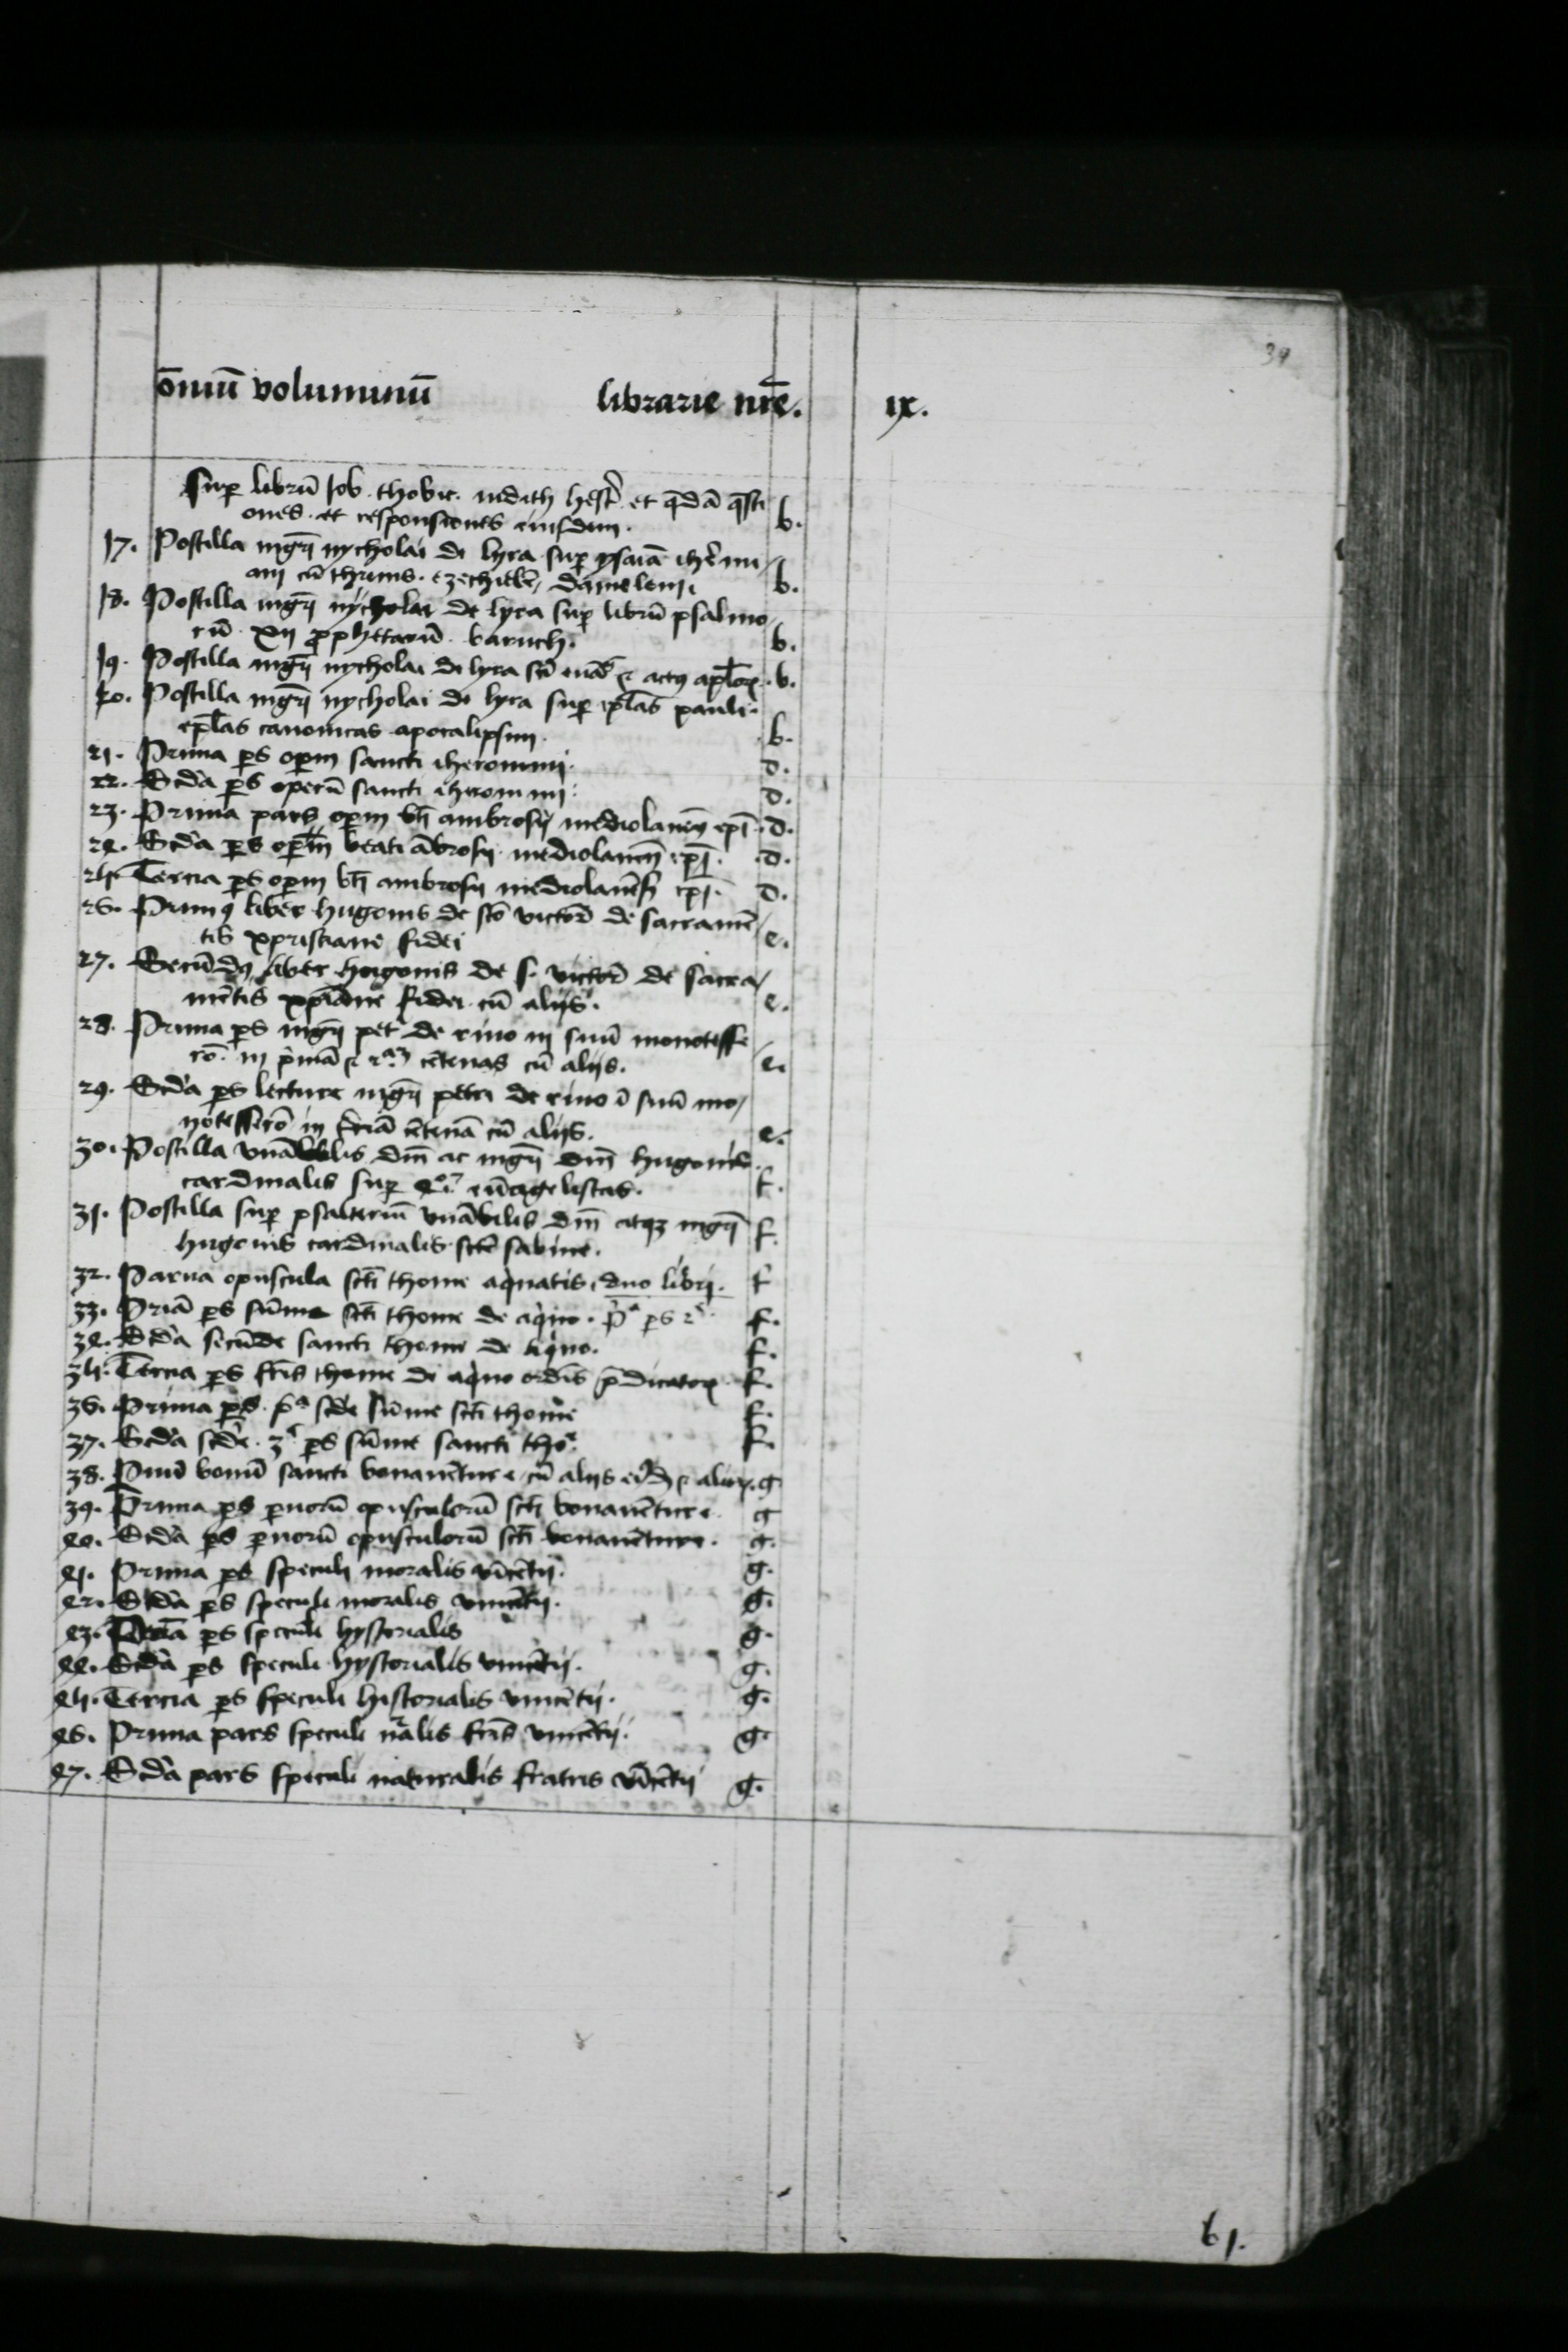 39
om̄iū voluminū librarie nr̄e. ix.
Suꝑ librū Job. thobie. iudith hest᷑ et q̄dā q̄sti
ones. et responsiones eiusdem. b.
17. Postilla mgr̄i nycholai de lyra suꝑ ysaiā ihere᷑mi
am cū threnis. ezechielē, danielem. b.
18. Postilla mgr̄i nycholai de lyra suꝑ librū psalmo
rū. xij ꝓphetarū. baruch. b.
19. Postilla mgr̄i nycholai de lyra et actꝯ apl̄oꝝ. b.
20. Postilla mgr̄i nycholai de lyra suꝑ epl̄as pauli.
epl̄as canonicas. apocalipsim. b.
21. Prima ꝑs oꝑm sancti iheronimi. d.
22. Scd̄a ꝑs operū sancti iheronimi. d.
23. Prima pars oꝑm bt̄i ambrosij mediolanēn̄ epī. d.
24. Scd̄a ꝑs oꝑm beati ābrosij mediolanēn̄ epī. d.
25. Tercia ꝑs oꝑm bt̄i ambrosij mediolanēs̄ epī. d.
26. Primꝯ liber hugonis de scō victorē de sacramē
tis xpristiane fidei e.
27. Secūdꝯ liber hugonis de s. victorē de sacra
mētis xpīane fidei cū alijs. e.
28. Prima ꝑs mgr̄i pet᷑ de rino in suū monotesse
rō. in p̄mā ⁊ 2ᵃᵐ cētenas cū alijs. e.
29. Scd̄a ꝑs lecture mgr̄i petri de rino ī suū mo
notesserō in t̄ciā cētenā cū alijs. e.
30. Postilla vn̄ābilis dn̄i ac mgr̄i dn̄i hugonis
cardinalis suꝑ 4ᵒʳ euāgelistas. f.
31. Postilla suꝑ psalteriū vn̄ābilis dn̄i atqꝫ mgr̄i
hugonis cardinalis scē sabine. f.
32. Parua opuscula sc̄ti thome aquatis, duo libri. f
33. Primā ꝑs sūme sc̄ti thome de aquo. p̄ᵃ ꝑs 2ᵉ. f.
34. Scd̄a secūde sancti thome de aquo. f.
35. Tercia ꝑs fr̄is thome de aquo ordīs p̄dicatoꝝ. f.
36. Prima ꝑs. p̄ᵃ scd̄e sūme sc̄ti thome f.
37. Scd̄a scd̄e. 3ᵃ ꝑs sūme sancti tho᷑. f.
38. bonū sancti bonauēture, cū alijs ⁊ alioꝝ. g
39. Prima ꝑs ꝑuorū opusculorū sc̄ti bonauēture. g
40. Scd̄a ꝑs ꝑuorū opusculorū sc̄ti bonauēture. g.
41. Prima ꝑs speculi moralis vīcētij. g.
42. Scd̄a ꝑs speculi moralis vincētij. g.
43. ꝑs speculi hystorialis g.
44. Scd̄a ꝑs speculi hystorialis vincētij. g.
45. Tercia ꝑs speculi historialis vincētij. g.
46. Prima pars speculi nr̄alis fr̄is vincētij. g.
47. Scd̄a pars speculi naturalis fratris vīcētij g.
b1.